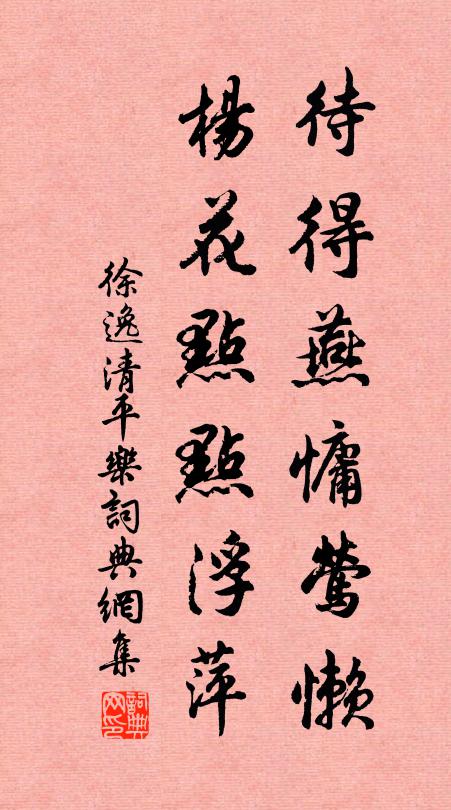 待得燕慵鶯懶
楊花點點浮萍
徐逸清平樂詞典網集
詞典网印